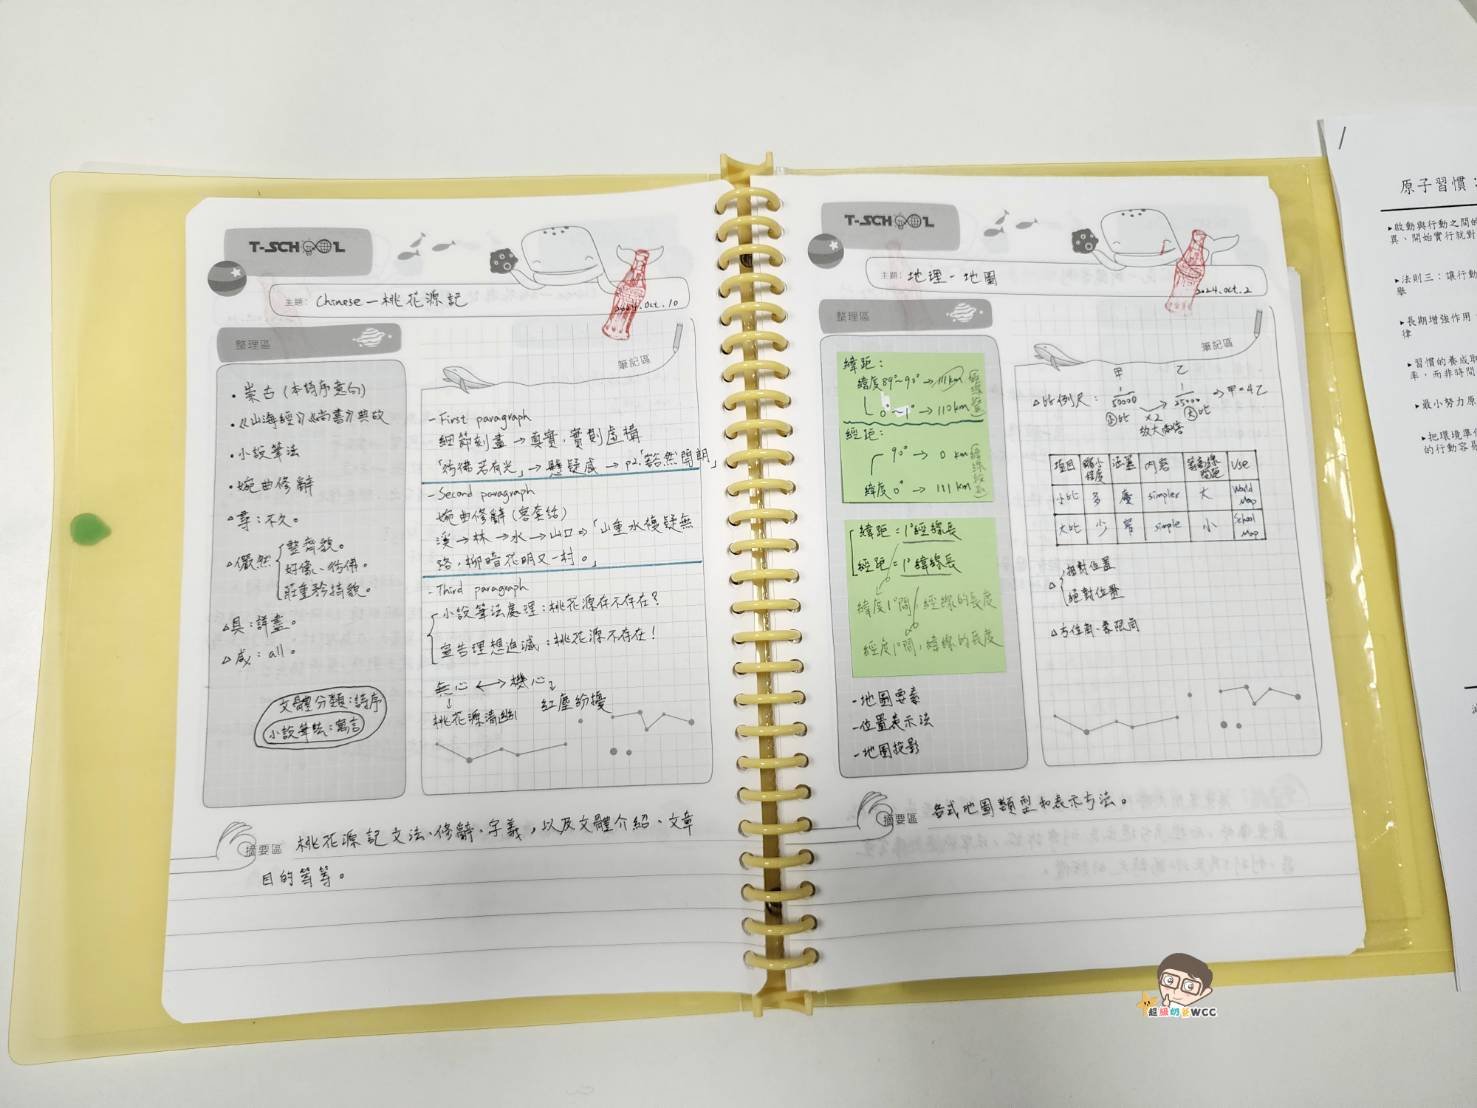 T-SCHOOL
主題: Chinese－桃花源記
2024.Oct.10
整理區
・崇古(本詩序意旨)
・《山海經》《尚書》典故
・小說筆法
・婉曲修辭
△尋:不久。
△儼然 整齊貌。
好像、彷彿。
莊重矜持貌。
△具:詳盡。
△咸:all。
文體分類:詩序
小說筆法:寓言
筆記區
-First paragraph
細節刻畫→真實,實則虛構
「彷彿若有光」→懸疑感→p2.「豁然開朗」
-Second paragraph
婉曲修辭
溪→林→水→山口⇒「山重水複疑無
路,柳暗花明又一村。」
-Third paragraph
小說筆法處理:桃花源存不存在?
宣告理想追滅:桃花源不存在!
無心←→機心
桃花源清幽 紅塵紛擾
摘要區 桃花源記文法、修辭、字義,以及文體介紹、文章
目的等等。
T-SCHOOL
主題: 地理-地圖
2024.Oct.2
整理區
緯距:
緯度89°~90°→111km
0°~1°→110km
經距:
90°→0 km
緯度0°→111km
緯距=1°經線長
經距=1°緯線長
緯度1°間,經線的長度
經度1°間,緯線的長度
-地圖要素
-位置表示法
-地圖投影
筆記區
甲 乙
△比例尺: 1/50000 1/25000 →甲=4乙
小比 ×2 大比
放大兩倍
項目 縮小程度 涵蓋 內容 等高線間距 Use
小比 多 廣 simpler 大 World Map
大比 少 窄 simple 小 School Map
△ 相對位置
絕對位置
△方位角、象限角
摘要區 各式地圖類型和表示方法。
原子習慣
▸啟動與行動之間的
異、開始實行就對
▸法則三:讓行動
舉
▸長期增強作用
律
▸習慣的養成取
率,而非時間
▸最小努力原
▸把環境準備
的行動容易
超級奶爸WCC